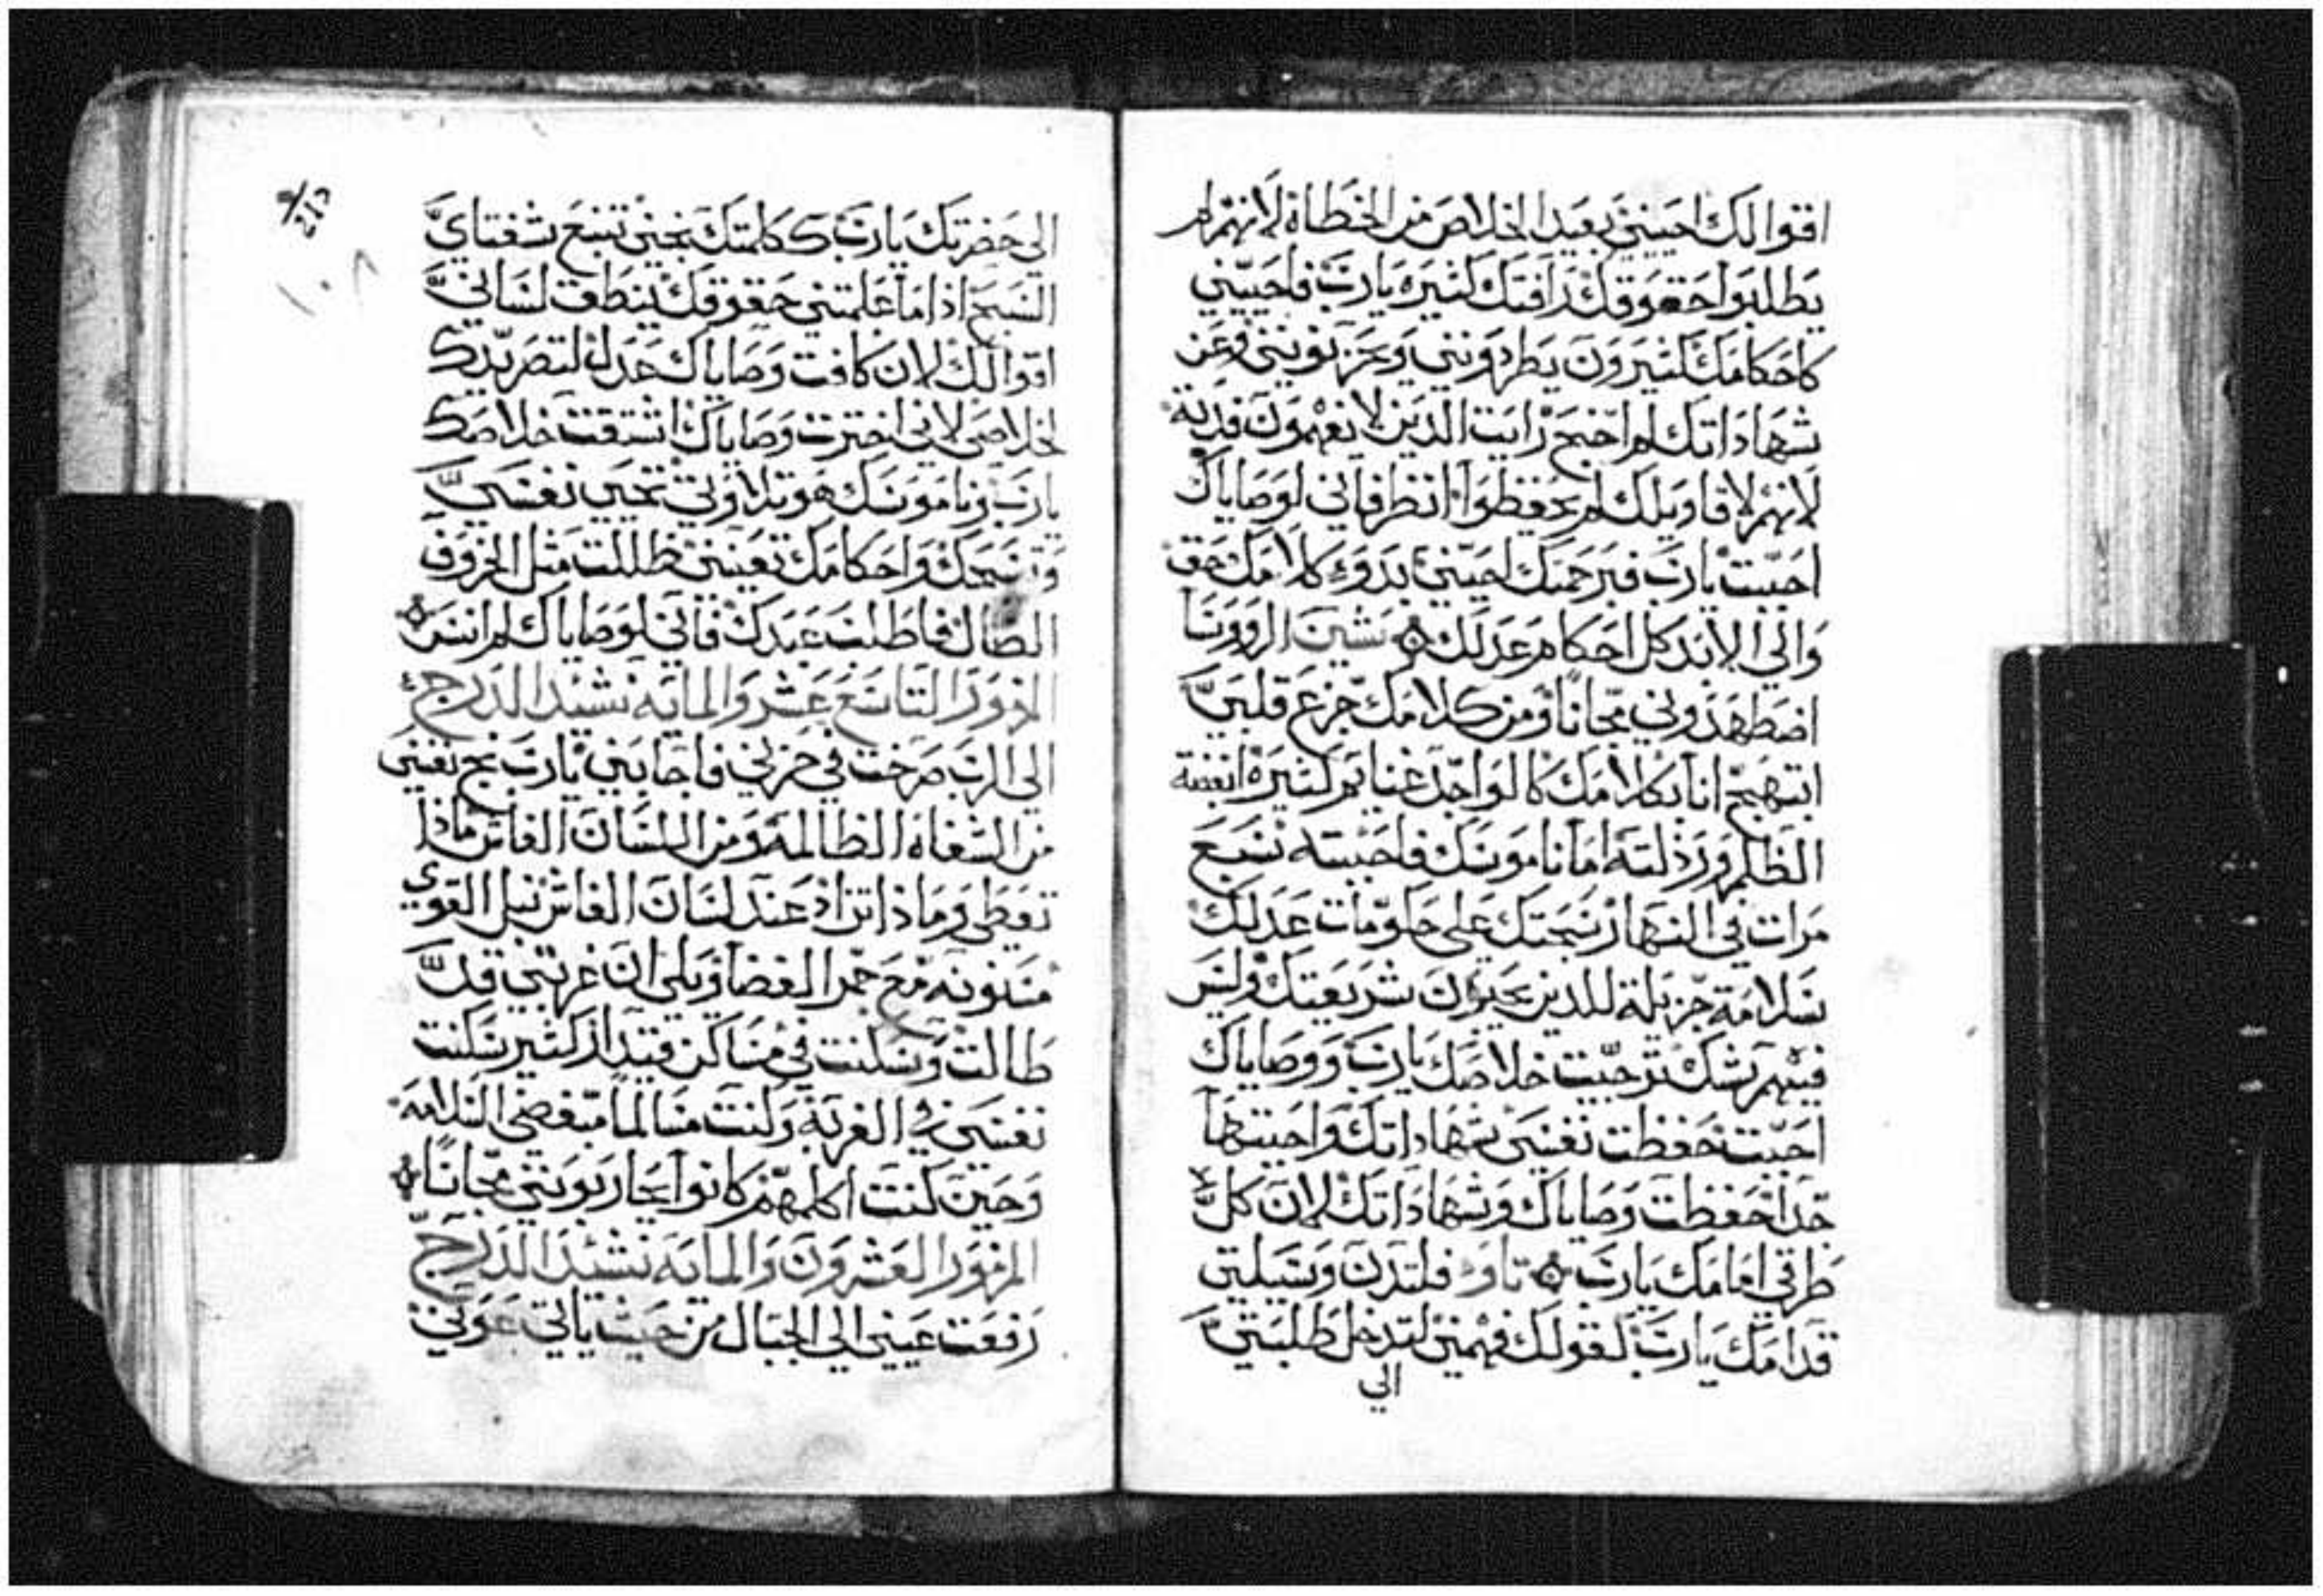 اقوالك احييني بعيد الخلاص من الخطاة لانهم لم
يطلبوا حقوقك رافتك كثيره يارب فاحييني
كاحكامك كثيرون يطردونني ويحزنونني وعن
شهاداتك لم اجنح رايت الذين لا يفهمون فدبة
لانهم لاقاويلك لم يحفظوا انظر فاني لوصاياك
احببت يارب فبرحمتك احييني بدوء كلامك حق
والي الابد كل احكام عدلك شين الروونسا
اضطهدوني مجانا ومن كلامك جزع قلبي
ابتهج انا بكلامك كالواجد غنايم كثيرة ابغضة
الظلم ورذلته اما ناموسك فاحببته سبع
مرات في النهار سبحتك علي حكومات عدلك
سلامة جزيلة للذين يحبون شريعتك وليس
فيهم شك ترجيت خلاصك يارب ووصاياك
احببت حفظت نفسي شهاداتك واحبتها
جدا حفظت وصاياك وشهاداتك لان كل
طرقي امامك يارب تاو فلتدن وسيلتي
قدامك يارب كقولك فهمني لتدخل طلبتي
الي
الي حضرتك يارب ككلمتك نجني تنبع شفتاي
التسبح اذا ما علمتني حقوقك ينطق لساني
اقوالك لان كافت وصاياك عدل لتصر يدك
لخلاصي لاني اخترت وصاياك اشتقت خلاصك
يارب وناموسك هو تلاوتي تحيي نفسي
وتسبحك واحكامك تعينني ظللت مثل الخروف
الضال فاطلب عبدك فاني لوصاياك لم انسى
المزمور التاسع عشر والمايه نشيد الدرج
الي الرب صرخت في حزني فاجابني يارب نج نفسي
من الشفاه الظالمه ومن اللسان الغاش ماذا
تعطي وماذا تزاد عند لسان الغاش نبل القوي
مسنونه مع جمر الغضا ويلي ان غربتي قد
طالت وسكنت في مساكن قيدار كثير سكنت
نفسي في الغربة وكنت مسالما مبغضي السلامه
وحين كنت اكلمهم كانوا يحاربونني مجانا
المزمور العشرون والمايه نشيد الدرج
رفعت عيني الي الجبال من حيث ياتي عوني
١٠٨